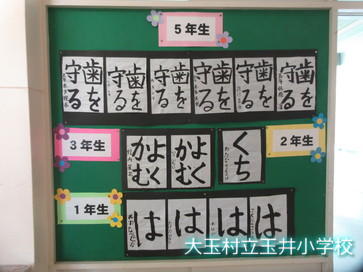 5年生
歯を守る
歯を守る
歯を守る
歯を守る
歯を守る
歯を守る
3年生
よくかむ
よくかむ
くち
2年生
1年生
は
は
は
は
大玉村立玉井小学校